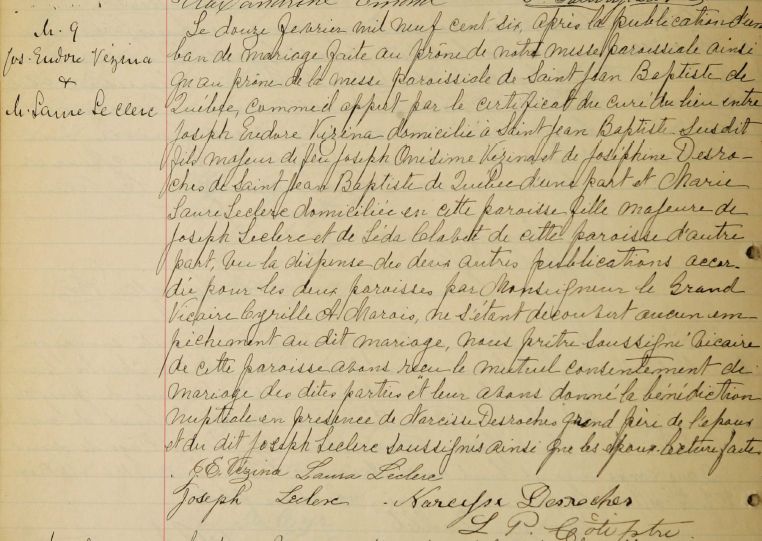 M. 9
Jos. Eudore Vézina
&
M. Laure Leclerc
Le douze février mil neuf cent six, après la publication d'un
ban de mariage faite au prône de notre messe paroissiale ainsi
qu'au prône de la messe paroissiale de Saint Jean Baptiste de
Québec, comme il appert par le certificat du curé du lieu entre
Joseph Eudore Vézina domicilié à Saint Jean Baptiste susdit
fils majeur de feu Joseph Onésime Vézina et de Joséphine Desro-
ches de Saint Jean Baptiste de Québec d'une part et Marie
Laure Leclerc domiciliée en cette paroisse fille majeure de
Joseph Leclerc et de Léda Clabet de cette paroisse d'autre
part, vu la dispense des deux autres publications accor-
dée pour les deux paroisses par Monseigneur le Grand
Vicaire Cyrille A. Marois, ne s'étant découvert aucun em-
pêchement au dit mariage, nous prêtre soussigné vicaire
de cette paroisse avons reçu le mutuel consentement de
mariage des dites parties et leur avons donné la bénédiction
nuptiale en présence de Narcisse Desroches grand père de l'époux
et du dit Joseph Leclerc soussignés ainsi que les époux. Lecture faite.
Vézina Laura Leclerc
Joseph Leclerc Narcisse Desroches
L. P. Côté ptre.